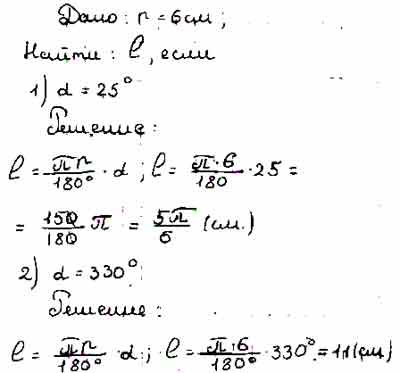 Дано: r = 6см;
Найти: l, если
1) α = 25°
Решение:
l = πr/180° · α; l = π·6/180 · 25 =
= 150/180 π = 5π/6 (см.)
2) α = 330°
Решение:
l = πr/180° · α; l = π·6/180° · 330° = 11(см)